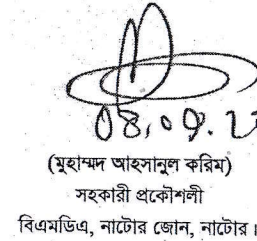 (মুহাম্মদ আহসানুল করিম)
সহকারী প্রকৌশলী
বিএমডিএ, নাটোর জোন, নাটোর।